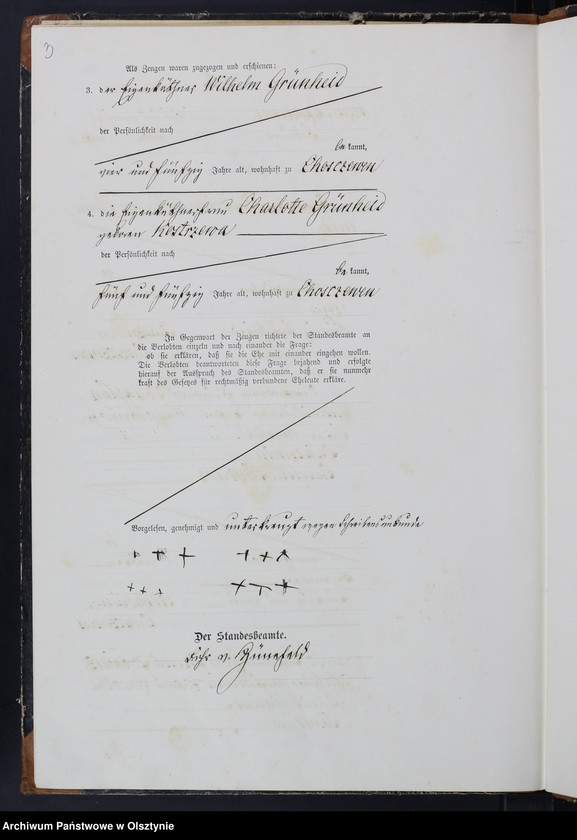 3
Als Zeugen waren zugezogen und erschienen:
3. der Eigenkäthner Wilhelm Grünheid
der Persönlichkeit nach
be kannt,
vier und fünfzig Jahre alt, wohnhaft zu Chosczewen
4. die Eigenkäthnerfrau Charlotte Grünheid
geboren Kostrzewa
der Persönlichkeit nach
be kannt,
fünf und fünfzig Jahre alt, wohnhaft zu Chosczewen
In Gegenwart der Zeugen richtete der Standesbeamte an
die Verlobten einzeln und nach einander die Frage:
ob sie erklären, daß sie die Ehe mit einander eingehen wollen.
Die Verlobten beantworteten diese Frage bejahend und erfolgte
hierauf der Ausspruch des Standesbeamten, daß er sie nunmehr
kraft des Gesetzes für rechtmäßig verbundene Eheleute erkläre.
Vorgelesen, genehmigt und unterkreuzt wegen Schreibensunkunde
+ + + + + +
+ + + + + +
Der Standesbeamte.
v. Hünefeld
Archiwum Państwowe w Olsztynie